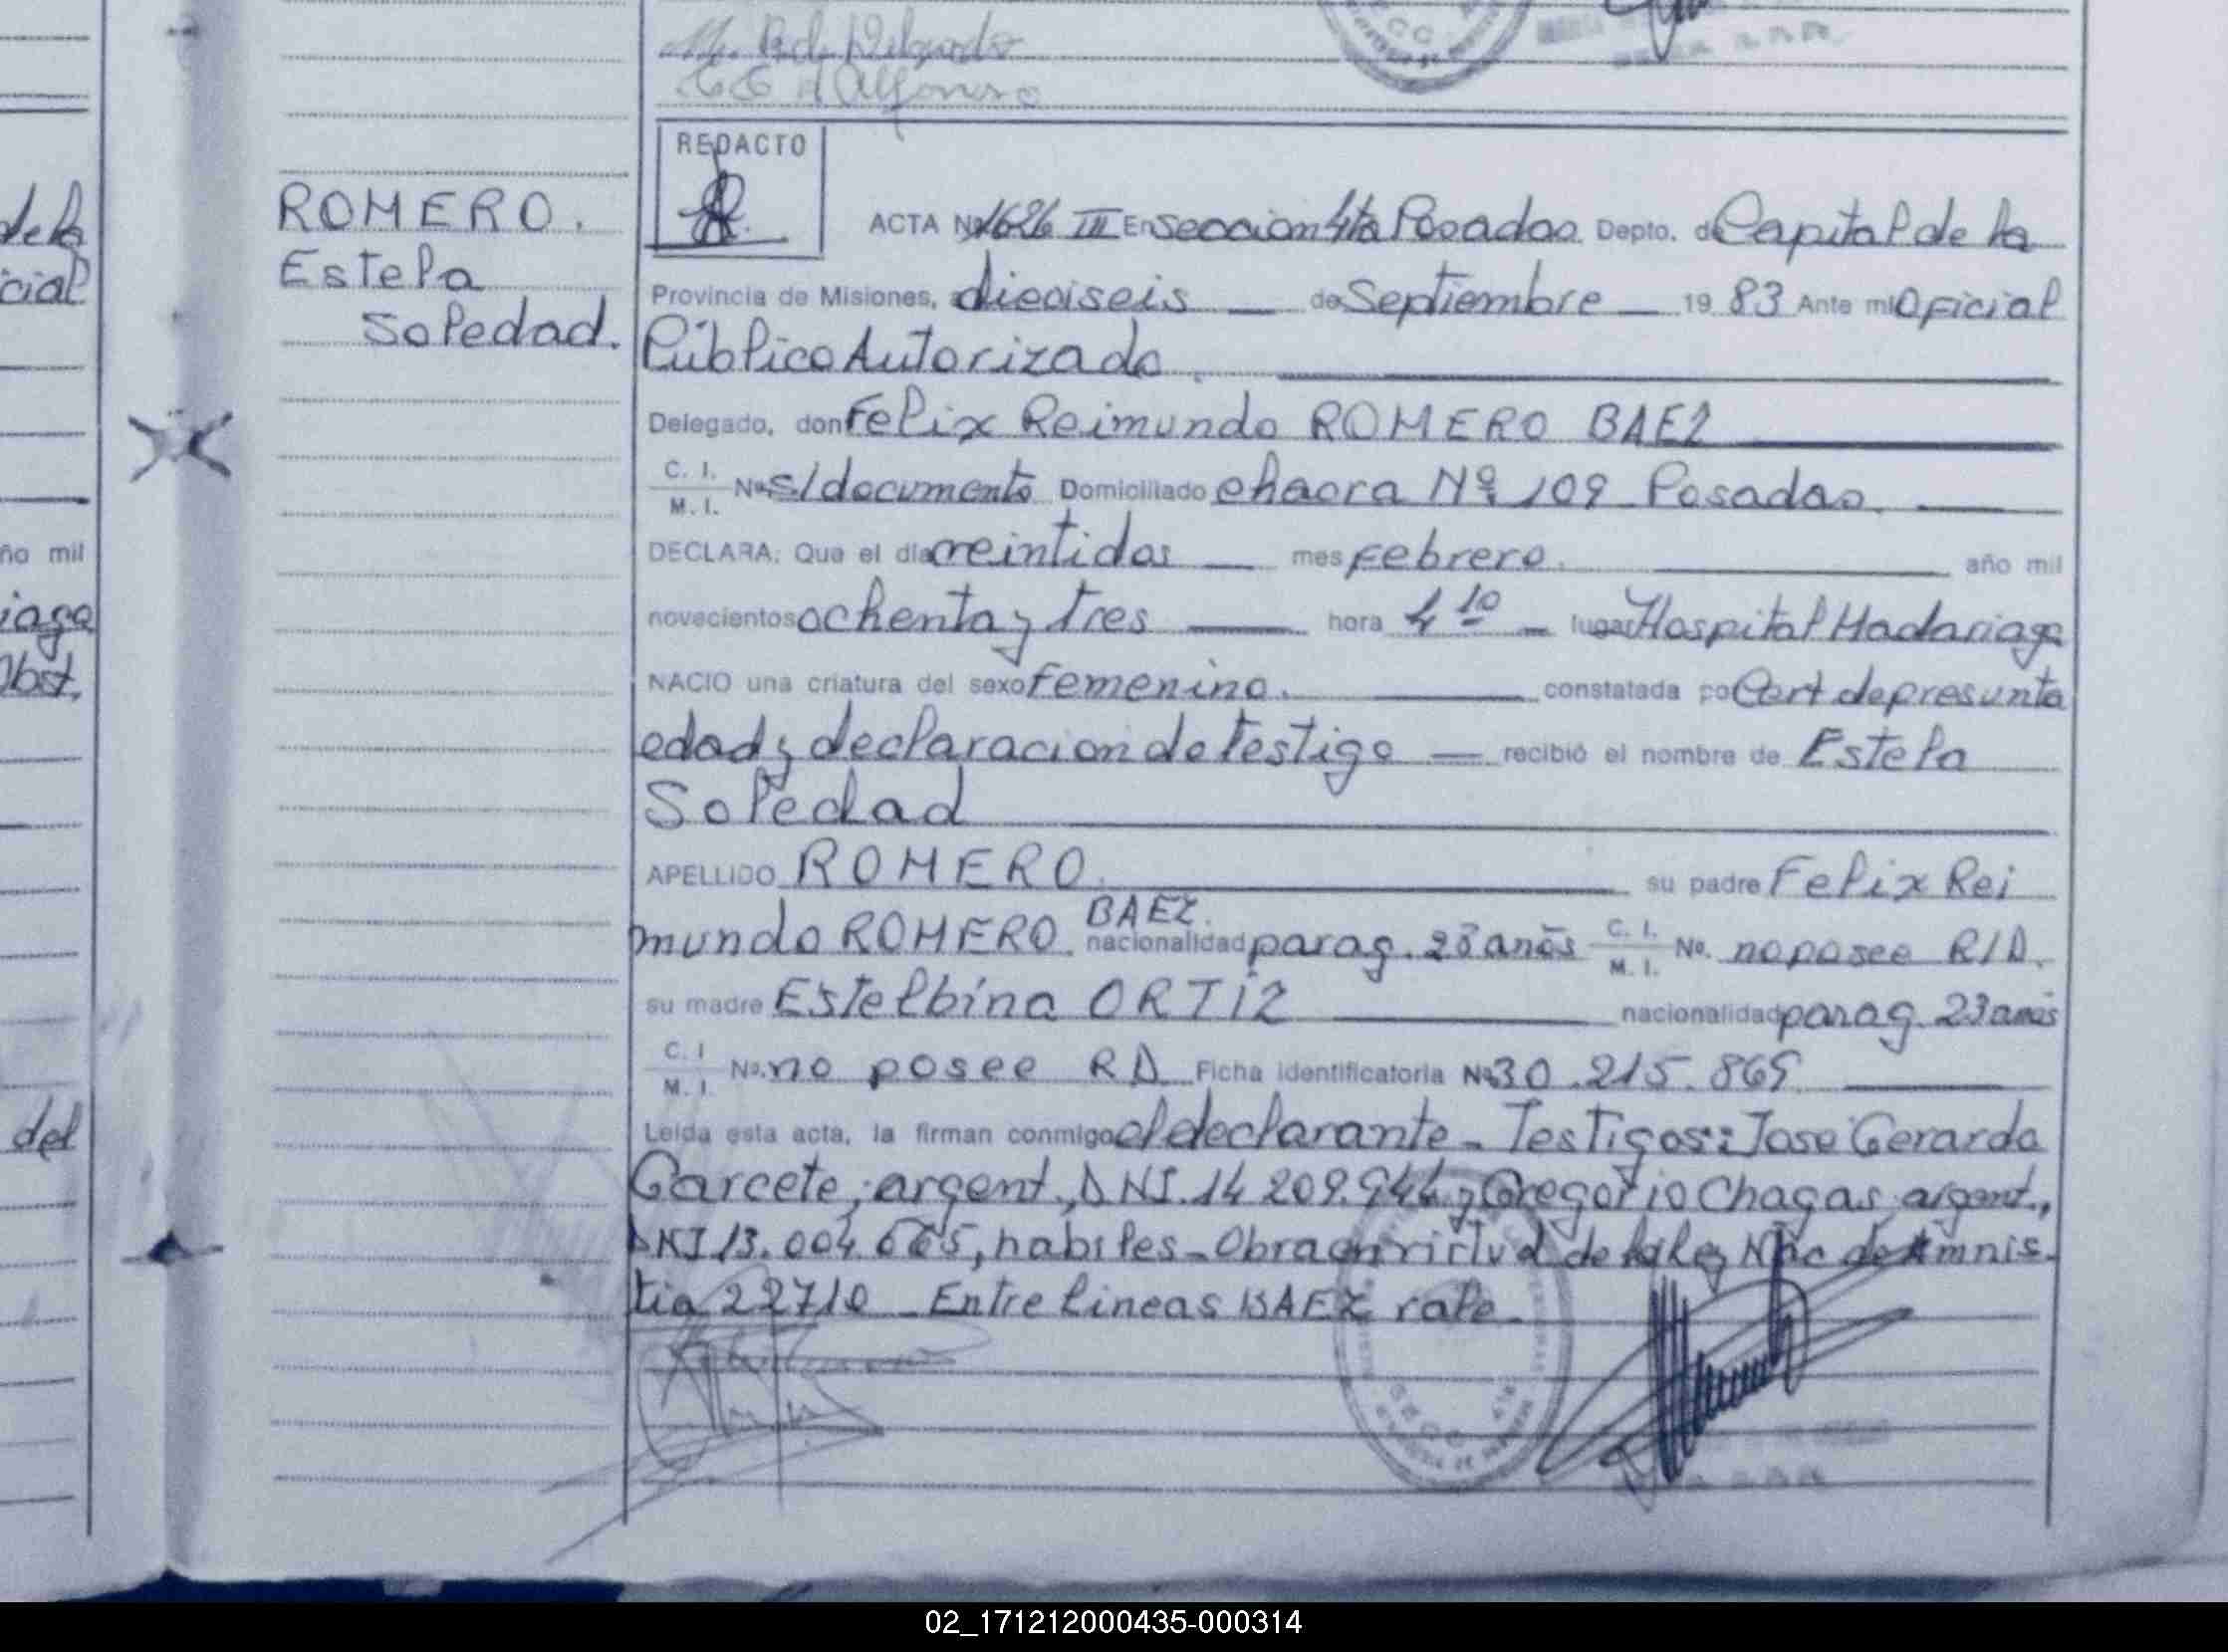 ROMERO.
Estela
Soledad.
REDACTO
ACTA Nº 1626 III En seccion 4ta Posadas Depto. de Capital de la
Provincia de Misiones, a dieciseis de Septiembre 19 83 Ante mi Oficial
Público Autorizado.
Delegado, don Felix Reimundo ROMERO BAEZ
C. I. M. I. Nº s/documento Domiciliado chacra Nº 109 Posadas.
DECLARA: Que el día veintidos mes Febrero. año mil
novecientos ochenta y tres hora 4 10 lugar Hospital Madariaga
NACIO una criatura del sexo Femenino. constatada por Cert de presunta
edad y declaracion de testigo recibió el nombre de Estela
Soledad
APELLIDO ROMERO. su padre Felix Rei
mundo ROMERO BAEZ. nacionalidad parag. 28 años C. I. M. I. No. no posee R/D.
su madre Estelbina ORTIZ nacionalidad parag. 23 años
C. I M. I. No. no posee RD Ficha identificatoria Nº 30.215.865
Leida esta acta, la firman conmigo el declarante - Testigos: Jose Gerardo
Garcete, argent., DNI. 14 209.944 y Gregorio Chagas, argent.,
DNI 13.004.665, habiles - Obra en virtud de la ley Nac de Amnis-
tia 22710 - Entre lineas BAEZ vale.
ño mil
iaga
Obst,
del
de la
cial
02_171212000435-000314